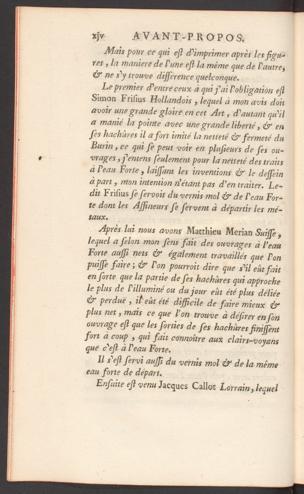 xjv AVANT-PROPOS.
Mais pour ce qui est d'imprimer après les figu-
res, la maniere de l'une est la même que de l'autre,
& ne s'y trouve difference quelconque.
Le premier d'entre ceux à qui j'ai l'obligation est
Simon Frisius Hollandois, lequel à mon avis doit
avoir une grande gloire en cet Art, d'autant qu'il
a manié la pointe avec une grande liberté, & en
ses hachûres il a fort imité la netteté & fermeté du
Burin, ce qui se peut voir en plusieurs de ses ou-
vrages, j'entens seulement pour la netteté des traits
à l'eau Forte, laissant les inventions & le dessein
à part, mon intention n'étant pas d'en traiter. Le-
dit Frisius se servoit du vernis mol & de l'eau For-
te dont les Affineurs se servent à départir les mé-
taux.
Après lui nous avons Matthieu Merian Suisse,
lequel a selon mon sens fait des ouvrages à l'eau
Forte aussi nets & également travaillés que l'on
puisse faire; & l'on pourroit dire que s'il eût fait
en sorte que la partie de ses hachûres qui approche
le plus de l'illuminé ou du jour eût été plus déliée
& perduë, il eût été difficile de faire mieux &
plus net, mais ce que l'on trouve à désirer en son
ouvrage est que les sorties de ses hachûres finissent
fort à coup, qui fait connoître aux clairs-voyans
que c'est à l'eau Forte.
Il s'est servi aussi du vernis mol & de la même
eau forte de départ.
Ensuite est venu Jacques Callot Lorrain, lequel